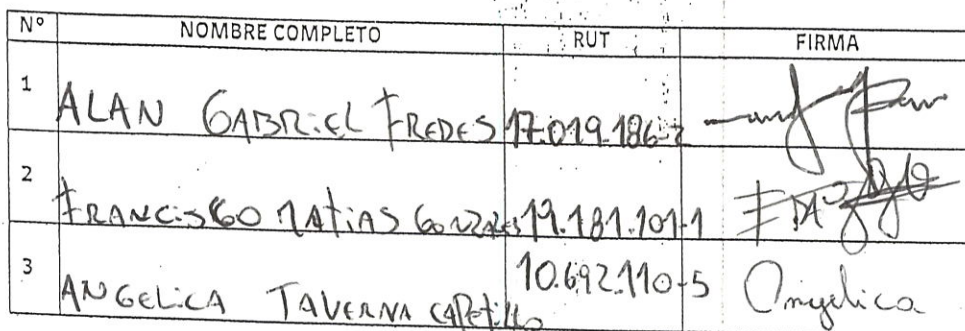 N° NOMBRE COMPLETO RUT FIRMA
1 ALAN GABRIEL FREDES 17.019.186-2
2 FRANCISCO MATIAS GONZALES 19.181.101-1
3 ANGELICA TAVERNA CAPETILLO 10.692.110-5 Angelica